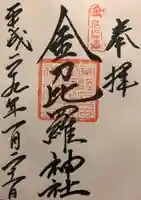 奉拝
金刀比羅神社
平成二十九年一月二十二日